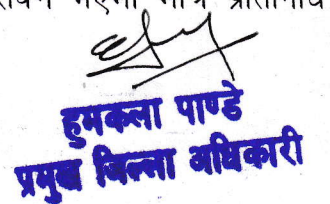 मात्र
हुमकला पाण्डे
प्रमुख जिल्ला अधिकारी